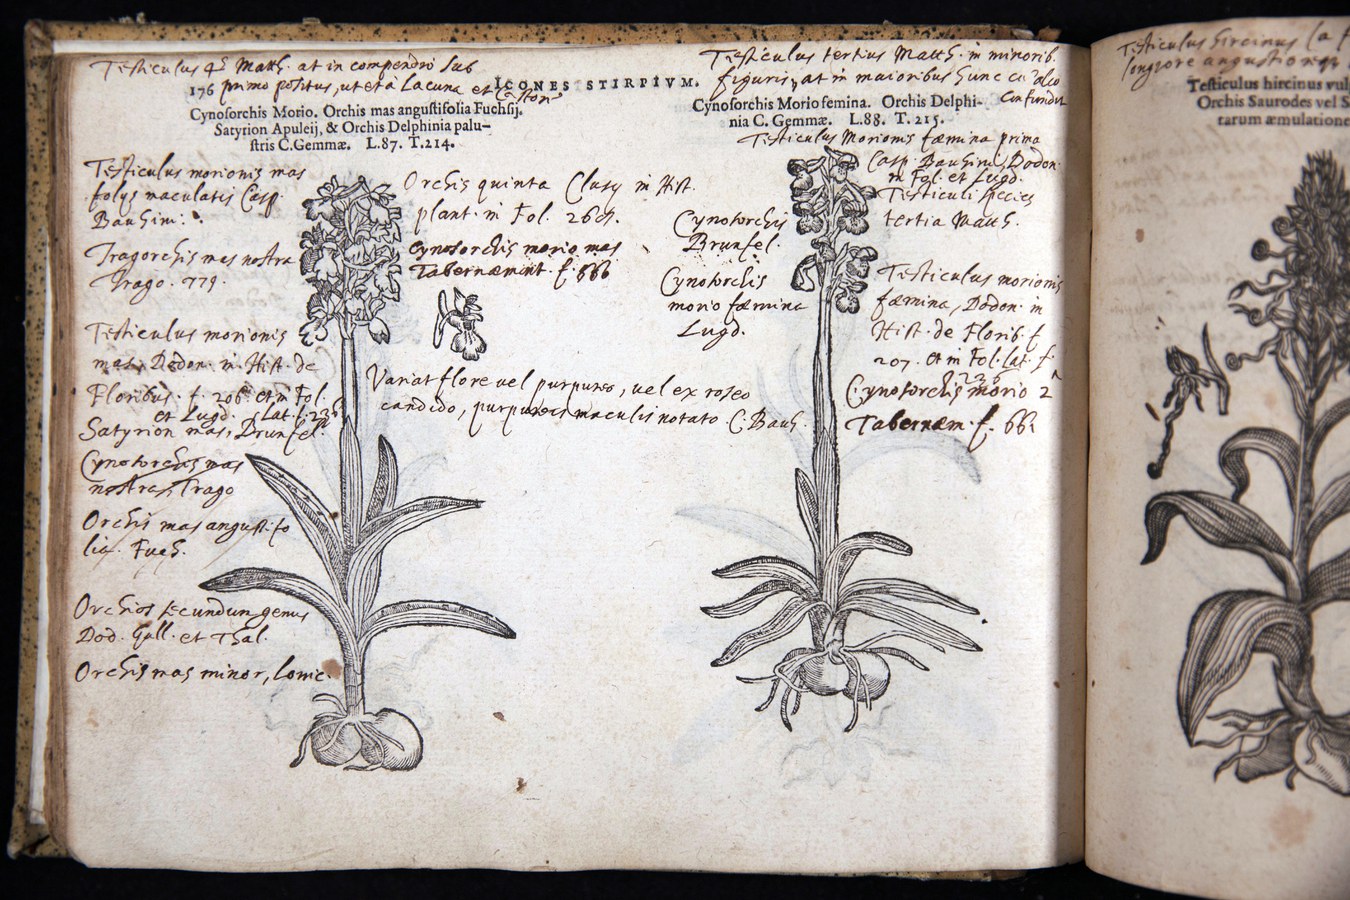 Testiculus 4us Matth. at in compendio sub
primo positus, ut et à Lacuna et Caston
176 ICONES STIRPIVM.
Cynosorchis Morio. Orchis mas angustifolia Fuchsij,
Satyrion Apuleij, & Orchis Delphinia palu-
stris C.Gemmæ. L.87. T.214.
Testiculus morionis mas
folys maculatis Casp.
Bauhini.
Tragorchis mas nostra
Trago. 779.
Testiculus morionis
mas, Dodon. in Hist. de
Floribus. f. 206. et in Fol.
et Lugd. Lat. f. 236
Satyrion mas, Brunfel.
Cynosorchis mas
nostra, Trago
Orchis mas angustifo
lia. Fuch.
Orchios secundum genus
Dod. Gall. et Thal.
Orchis mas minor, Lonic.
Orchis quinta Clusy in Hist.
plant. in Fol. 267.
Cynosorchis morio mas
Tabernæmont. f. 661
Variat flore vel purpureo, vel ex roseo
candido, purpureis maculis notato C. Bauh.
Testiculus tertius Matth. in minorib.
figuris, at in maioribus hunc cu alio
confundit
Cynosorchis Morio femina. Orchis Delphi-
nia C. Gemmæ. L.88. T.215.
Testiculus Morionis fæmina prima
Casp. Bauhini, Dodon.
in Fol. et Lugd.
Testiculi species
tertia Matth.
Cynosorchis
Brunfel.
Cynosorchis
morio fæmina
Lugd.
Testiculus morionis
fæmina, Dodon. in
Hist. de Florib. f.
207. et in Fol. lat. f.
236
Cynosorchis morio 2
Tabernæm. f. 661
Testiculus hircinus
longiore angustioreq
Testiculus hircinus vul
Orchis Saurodes vel S
rarum æmulatione